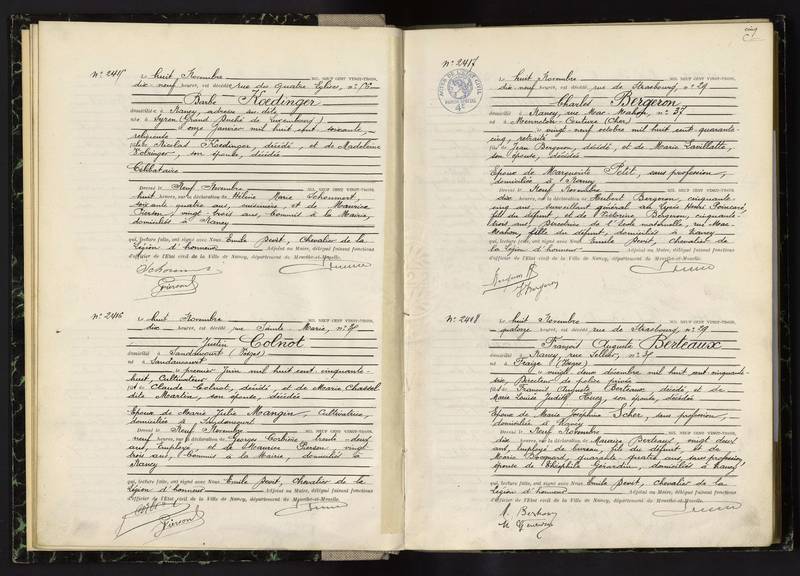 N° 2415
Le huit Novembre MIL NEUF CENT VINGT-TROIS,
dix-neuf heures, est décédée rue du Quatre Eglises, n° 76
Barbe Koedinger
domiciliée à Nancy adresse susdite
née à Syren (Grand Duché de Luxembourg)
onze Janvier mil huit cent soixante,
religieuse
fille de Nicolas Koedinger, décédé, et de Madeleine
son épouse, décédée
Célibataire
Devant le Neuf Novembre MIL NEUF CENT VINGT-TROIS,
huit heures, sur la déclaration de Hélène Marie Schommert,
soixante quatre ans, et de Maurice
Pierson, vingt trois ans, Commis à la Mairie,
domiciliés à Nancy
qui, lecture faite, ont signé avec Nous Emile Devit, Chevalier de la
Légion d'honneur Adjoint au Maire, délégué faisant fonctions
d'officier de l'Etat civil de la Ville de Nancy, département de Meurthe-et-Moselle.
Pierson
N° 2416
Le huit Novembre MIL NEUF CENT VINGT-TROIS,
dix heures, est décédé rue Sainte Marie, n°
Justin Colnot
domicilié à Sandaucourt (Vosges)
né à Sandaucourt
premier Juin mil huit cent cinquante-
huit, Cultivateur
fils de Claude Colnot, décédé, et de Marie Chassel
dite Martin, son épouse, décédée
Epoux de Marie Julie Mangin, Cultivatrice,
domiciliée à Sandaucourt
Devant le Neuf Novembre MIL NEUF CENT VINGT-TROIS,
neuf heures, sur la déclaration de Georges Corbière trente-deux
ans, Employé, et de Maurice Pierson vingt
trois ans, Commis à la Mairie, domiciliés à
Nancy
qui, lecture faite, ont signé avec Nous Emile Devit, Chevalier de la
Légion d'honneur Adjoint au Maire, délégué faisant fonctions
d'officier de l'Etat civil de la Ville de Nancy, département de Meurthe-et-Moselle.
Pierson
N° 2417
Le huit Novembre MIL NEUF CENT VINGT-TROIS,
dix-neuf heures, est décédé rue de Strasbourg, n° 29
Charles Bergeron
domicilié à Nancy, rue Mac-Mahon, n° 37
né à Menneton-Couture (Cher)
vingt neuf octobre mil huit cent quarante-
cinq, retraité
fils de Jean Bergeron, décédé, et de Marie Lavillatte,
son épouse, décédée
Epoux de Marguerite Petit, sans profession,
domiciliée à Nancy
Devant le Neuf Novembre MIL NEUF CENT VINGT-TROIS,
dix heures, sur la déclaration de Hubert Bergeron, cinquante-
cinq ans, Surveillant général au Lycée Henri Poincaré,
fils du défunt, et de Victorine Bergeron, cinquante-
trois ans, Directrice de l'école maternelle, rue Mac-
Mahon, fille du défunt, domiciliés à Nancy
qui, lecture faite, ont signé avec Nous Emile Devit, Chevalier de
la Légion d'honneur Adjoint au Maire, délégué faisant fonctions
d'officier de l'Etat civil de la Ville de Nancy, département de Meurthe-et-Moselle.
Bergeron
Bergeron
N° 2418
Le huit Novembre MIL NEUF CENT VINGT-TROIS,
quatorze heures, est décédé rue de Strasbourg, n° 29
François Auguste Berteaux
domicilié à Nancy, rue Sellier, n°
né à Fraize (Vosges)
vingt deux décembre mil huit cent cinquante
Directeur de police privée
fils de Francois Auguste Berteaux décédé, et de
Marie Louise Judith Huey, son épouse, décédée
Epoux de Marie Joséphine Scher, sans profession,
domiciliée à Nancy
Devant le Neuf Novembre MIL NEUF CENT VINGT-TROIS,
dix heures, sur la déclaration de Maurice Berteaux, vingt deux
ans, Employé de bureau, fils du défunt et de
Marie quarante quatre ans, sans profession,
épouse de Théophile Gérardin, domiciliés à Nancy
qui, lecture faite, ont signé avec Nous Emile Devit, Chevalier de la
Légion d'honneur Adjoint au Maire, délégué faisant fonctions
d'officier de l'Etat civil de la Ville de Nancy, département de Meurthe-et-Moselle.